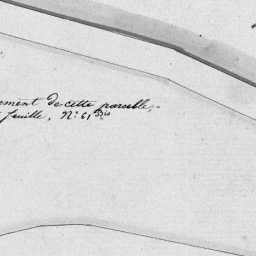 ement de cette parcelle,
feuille, N° 61 bis